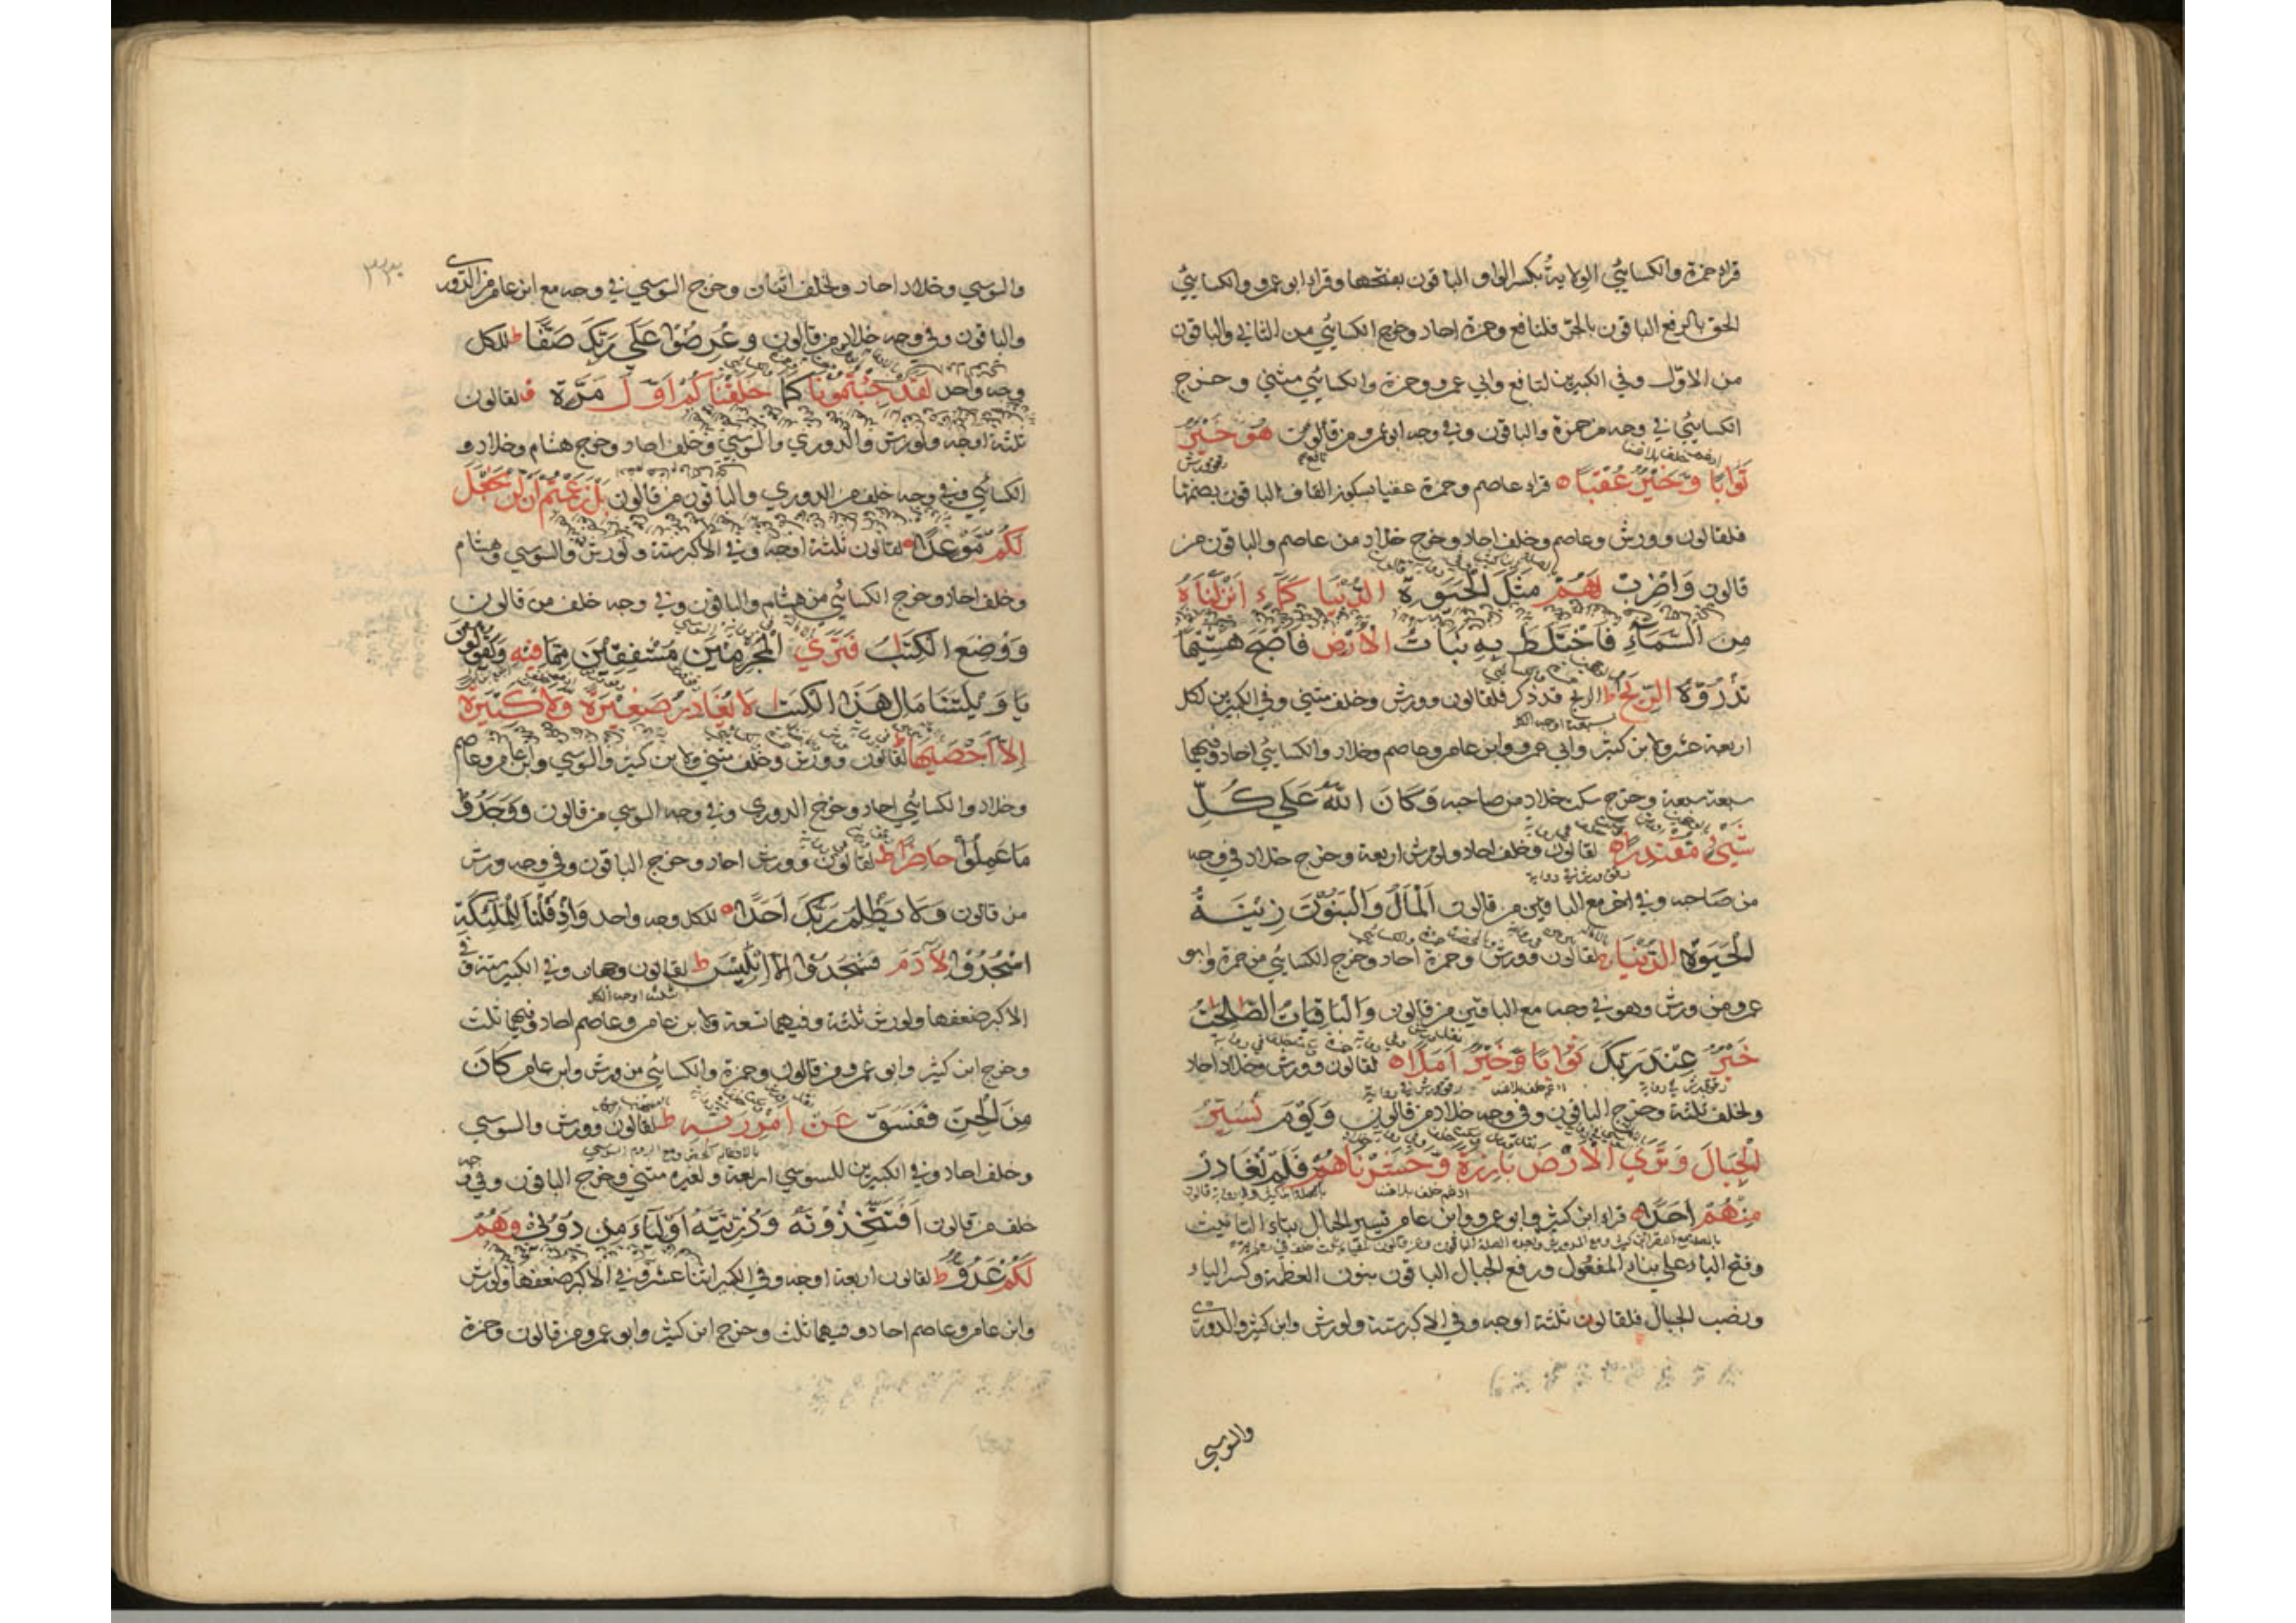 قراء حمزة والكسائي الولاية بكسر الواو والباقون بفتحها وقراء ابو عمرو والكسائي
الحق بالرفع الباقون بالجر فلنافع وحمزة احاد وخرج الكسائي من الثاني والباقون
من الاول وفي الكبيرين لنافع وابي عمرو وحمزة والكسائي مثنى وخرج
الكسائي في وجه من حمزة والباقون وفي وجه ابو عمرو من قالون هُوَ خَيْرٌ
ثَوَابًا وَخَيْرٌ عُقْبًا ه قراء عاصم وحمزة عقبا بسكون القاف الباقون بضمها
فلقالون وورش وعاصم وخلف احاد وخرج خلاد من عاصم والباقون من
قالون وَاضْرِبْ لَهُمْ مَثَلَ الْحَيٰوةِ الدُّنْيَا كَمَاءٍ اَنْزَلْنَاهُ
مِنَ السَّمَاءِ فَاخْتَلَطَ بِهِ نَبَاتُ الْاَرْضِ فَاَصْبَحَ هَشِيمًا
تَذْرُوهُ الرِّيٰحُ ط الريح قد ذكر فلقالون وورش وخلف مثنى وفي الكبيرين لكل
اربعة عشر ولابن كثير وابي عمرو وابن عامر وعاصم وخلاد والكسائي احاد وفيهما
سبعة سبعة وخرج سكت خلاد من صاحبه وَكَانَ اللّٰهُ عَلَى كُلِّ
شَيْءٍ مُقْتَدِرًا ه لقالون وخلف احاد ولورش اربعة وخرج خلاد في وجه
من صاحبه وفي اخر مع الباقين من قالون اَلْمَالُ وَالْبَنُونَ زِينَةُ
الْحَيٰوةِ الدُّنْيَا ج لقالون وورش وحمزة احاد وخرج الكسائي من حمزة وابو
عمرو من ورش وهو في وجه مع الباقين من قالون وَالْبَاقِيَاتُ الصّٰلِحٰتُ
خَيْرٌ عِنْدَ رَبِّكَ ثَوَابًا وَخَيْرٌ اَمَلًا ه لقالون وورش وخلاد احاد
ولخلف ثلثة وخرج الباقون وفي وجه خلاد من قالون وَيَوْمَ نُسَيِّرُ
الْجِبَالَ وَتَرَى الْاَرْضَ بَارِزَةً وَحَشَرْنَاهُمْ فَلَمْ نُغَادِرْ
مِنْهُمْ اَحَدًا ه قراء ابن كثير وابو عمرو وابن عامر تسير الجبال بتاء التانيث
وفتح الياء على بناء المفعول ورفع الجبال الباقون بنون العظمة وكسر الياء
ونصب الجبال فلقالون ثلثة اوجه وفي الاكبر ستة ولورش وابن كثير والدوري
والسوسي
٣٣٠
والسوسي وخلاد احاد ولخلف اثنان وخرج السوسي في وجه مع ابن عامر من الدوري
والباقون وفي وجه خلاد من قالون وَعُرِضُوا عَلَى رَبِّكَ صَفًّا ط للكل
وجه واحد لَقَدْ جِئْتُمُونَا كَمَا خَلَقْنَاكُمْ اَوَّلَ مَرَّةٍ لقالون
ثلثة اوجه ولورش والدوري والسوسي وخلف احاد وخرج هشام وخلاد و
الكسائي وفي وجه خلف من الدوري والباقون من قالون بَلْ زَعَمْتُمْ اَنْ لَنْ نَجْعَلَ
لَكُمْ مَوْعِدًا ه لقالون ثلثة اوجه وفي الاكبر ستة ولورش والسوسي وهشام
وخلف احاد وخرج الكسائي من هشام والباقون وفي وجه خلف من قالون
وَوُضِعَ الْكِتٰبُ فَتَرَى الْمُجْرِمِينَ مُشْفِقِينَ مِمَّا فِيهِ وَيَقُولُونَ
يَا وَيْلَتَنَا مَالِ هَذَا الْكِتٰبِ لَا يُغَادِرُ صَغِيرَةً وَلَا كَبِيرَةً
اِلَّا اَحْصٰيهَا ط لقالون وورش وخلف مثنى ولابن كثير والسوسي وابن عامر وعاصم
وخلاد والكسائي احاد وخرج الدوري وفي وجه السوسي من قالون وَوَجَدُوا
مَا عَمِلُوا حَاضِرًا ط لقالون وورش احاد وخرج الباقون وفي وجه ورش
من قالون وَلَا يَظْلِمُ رَبُّكَ اَحَدًا ه للكل وجه واحد وَاِذْ قُلْنَا لِلْمَلٰئِكَةِ
اسْجُدُوا لِاٰدَمَ فَسَجَدُوا اِلَّا اِبْلِيسَ ط لقالون وجهان وفي الكبير ستة وفي
الاكبر ضعفها ولورش ثلثة وفيهما تسعة ولابن عامر وعاصم احاد وفيهما ثلث
وخرج ابن كثير وابو عمرو من قالون وحمزة والكسائي من ورش وابن عامر كَانَ
مِنَ الْجِنِّ فَفَسَقَ عَنْ اَمْرِ رَبِّهِ ط لقالون وورش والسوسي
وخلف احاد وفي الكبيرين للسوسي اربعة ولغيره مثنى وخرج الباقون وفي وجه
خلف من قالون اَفَتَتَّخِذُونَهُ وَذُرِّيَّتَهُ اَوْلِيَاءَ مِنْ دُونِي وَهُمْ
لَكُمْ عَدُوٌّ ط لقالون اربعة اوجه وفي الكبير اثنا عشر وفي الاكبر ضعفها ولورش
وابن عامر وعاصم احاد وفيهما ثلث وخرج ابن كثير وابو عمرو من قالون وحمزة